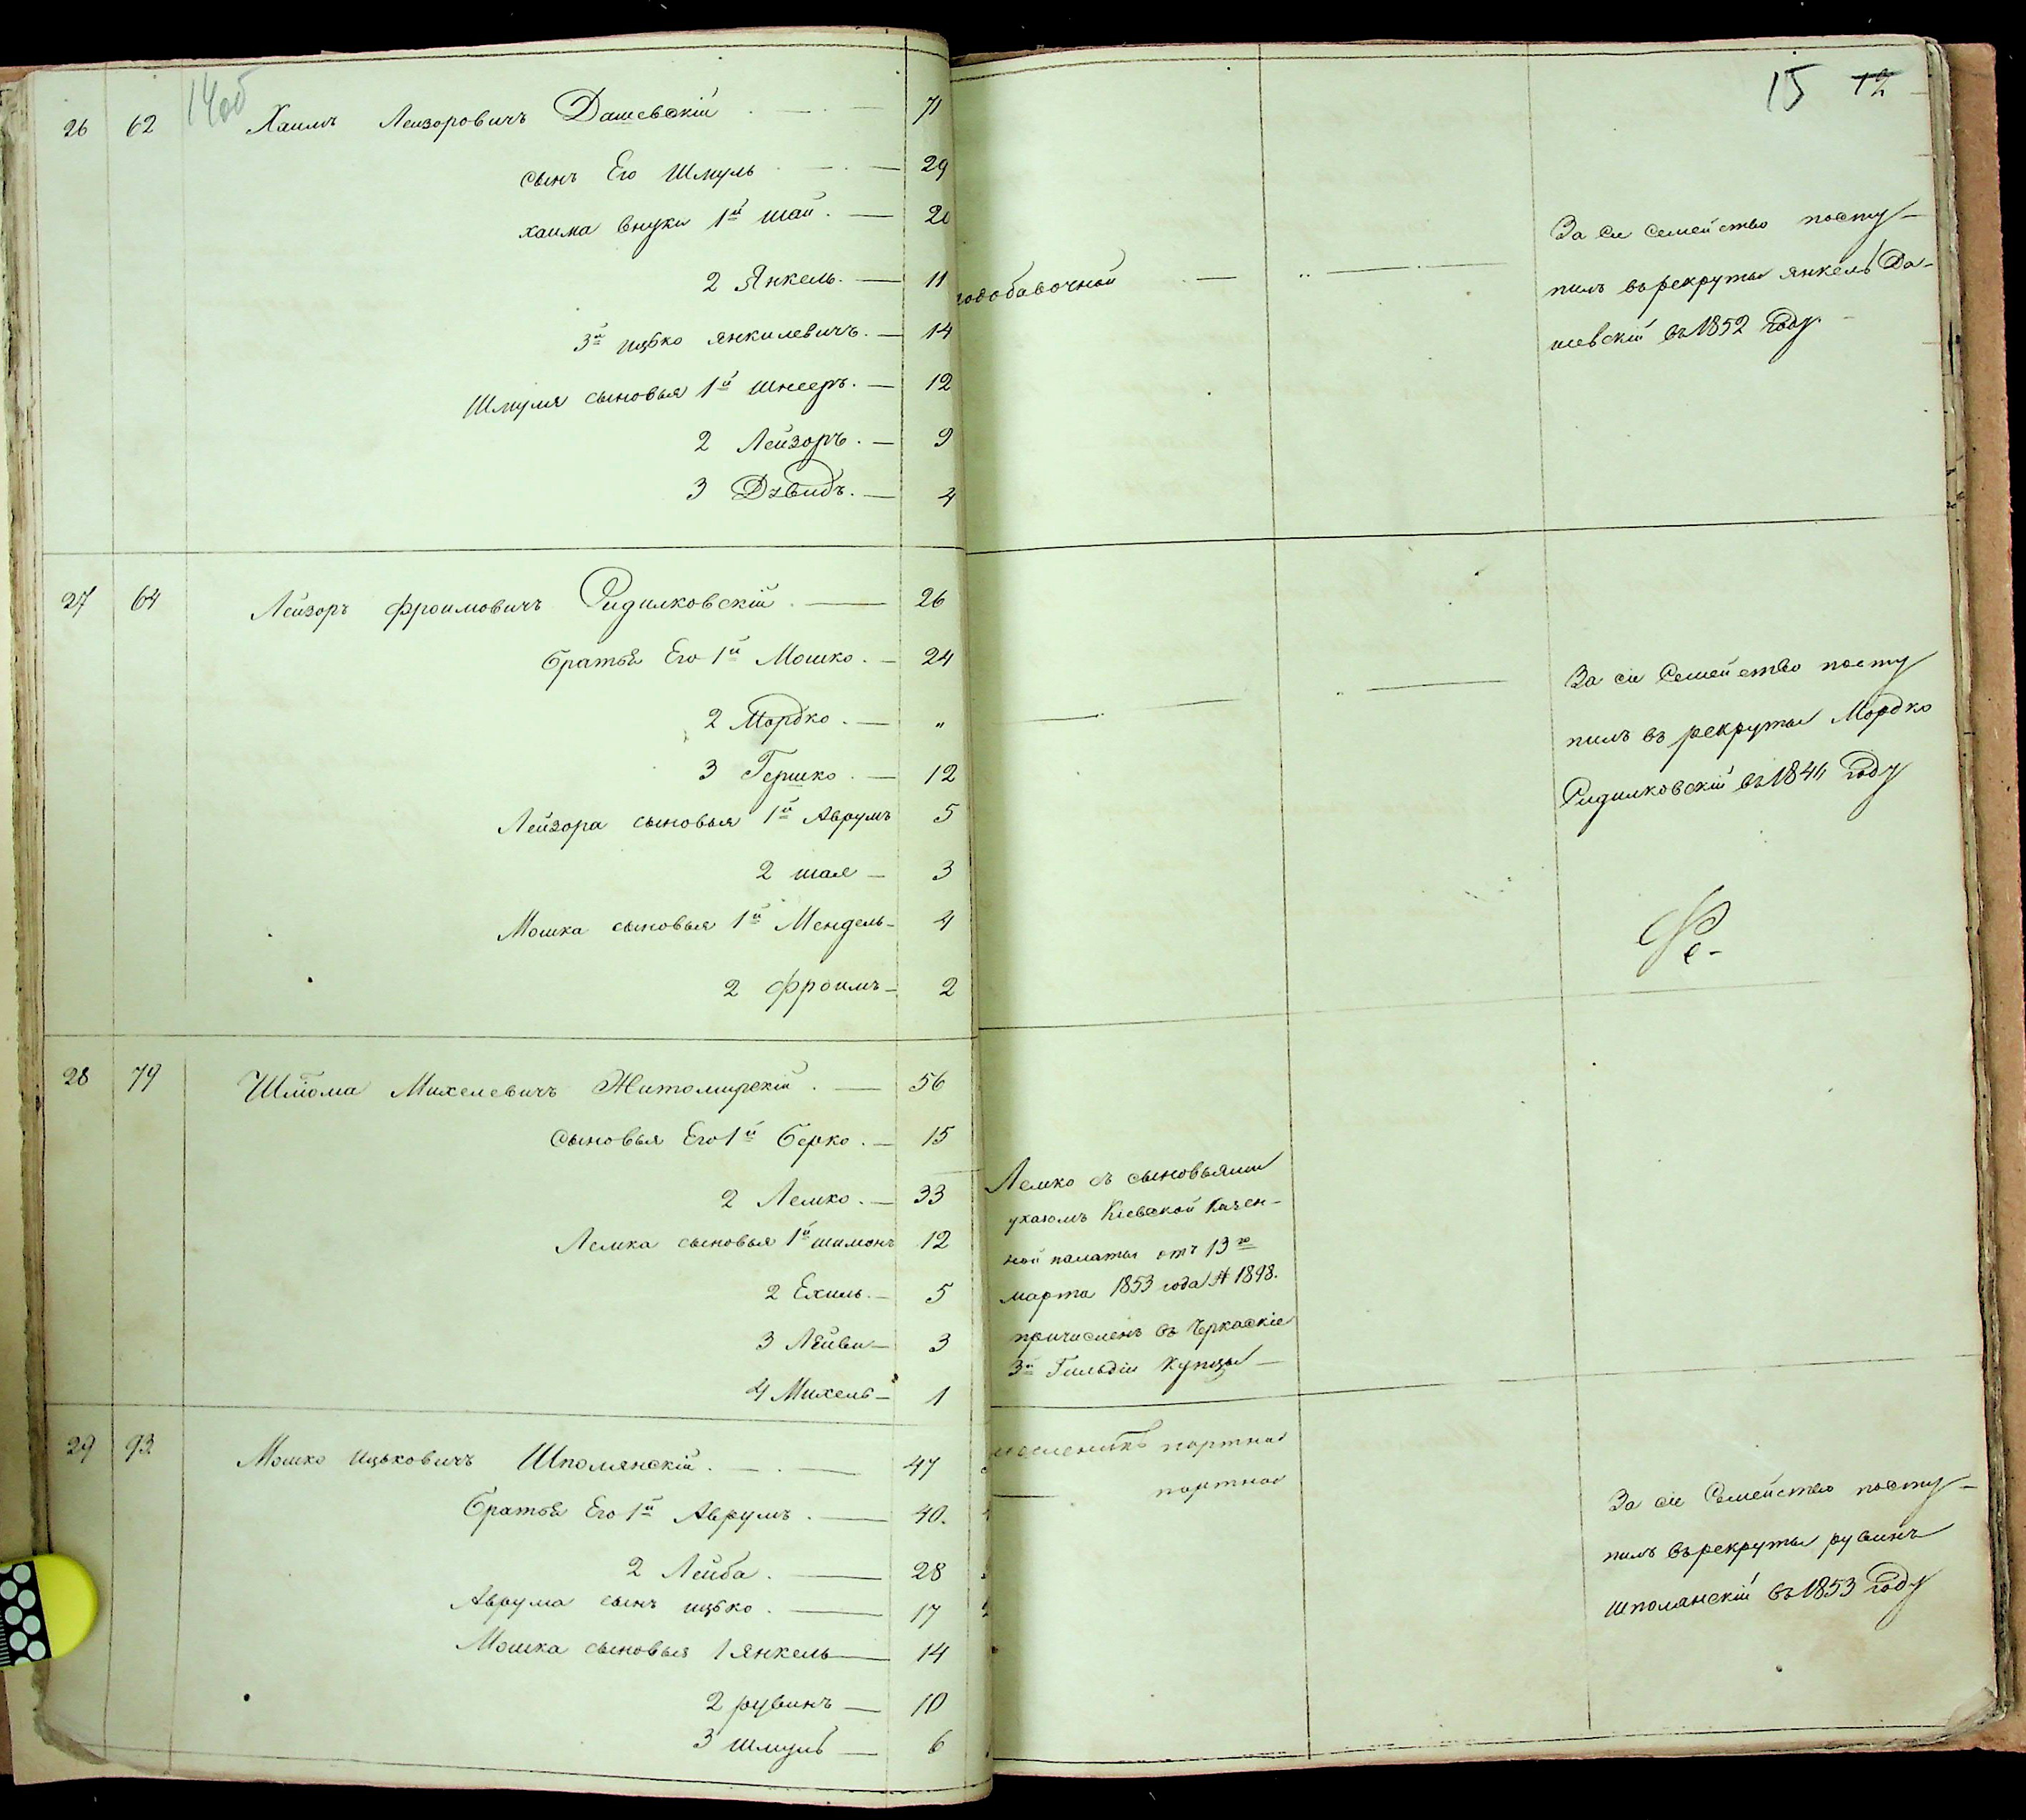 14об
26 62 Хаимъ Лейзоровичъ Дашевскій 71
сынъ Его Шмуль 29
хаима внуки 1й шай 20
2 Янкель 11
3й ицько янкилевичъ 14
Шмуля сыновья 1й шнееръ 12
2 Лейзоръ 9
3 Дввидъ 4
27 64 Лейзоръ фроимовичъ Ридилковскій 26
братья Его 1й Мошко 24
2 Мордко "
3 Гершко 12
Лейзора сыновья 1й Аврумъ 5
2 шая 3
Мошка сыновья 1й Мендель 4
2 фроимъ 2
28 79 Шліома Михелевичъ Житомирскій 56
Сыновья Его 1й берко 15
2 Лемко 33
Лемка сыновья 1й шимонъ 12
2 Ехиль 5
3 Лейви 3
4 Михель 1
29 93 Мошко ицьковичъ Шполянскій 47
братья Его 1й Аврумъ 40.
2 Лейба 28
Аврума сынъ ицько 17
Мошка сыновья 1 янкель 14
2 рувинъ 10
3 шмуль 6
15 12
За сіе семейство посту-
пилъ въ рекруты янкель Да-
шевскій въ 1852 году
За сіе Семейство посту
пилъ въ рекруты Мордко
Ридилковскій въ 1841 году
Лемко съ сыновьями
указомъ Кіевской Казен-
ной палаты отъ 13го
марта 1853 года № 1898.
причисленъ въ Черкаскіе
3й Гильдіи купцы
портной
портной
За сіе Семейство посту-
пилъ въ рекруты рувинъ
шполянскій въ 1853 году